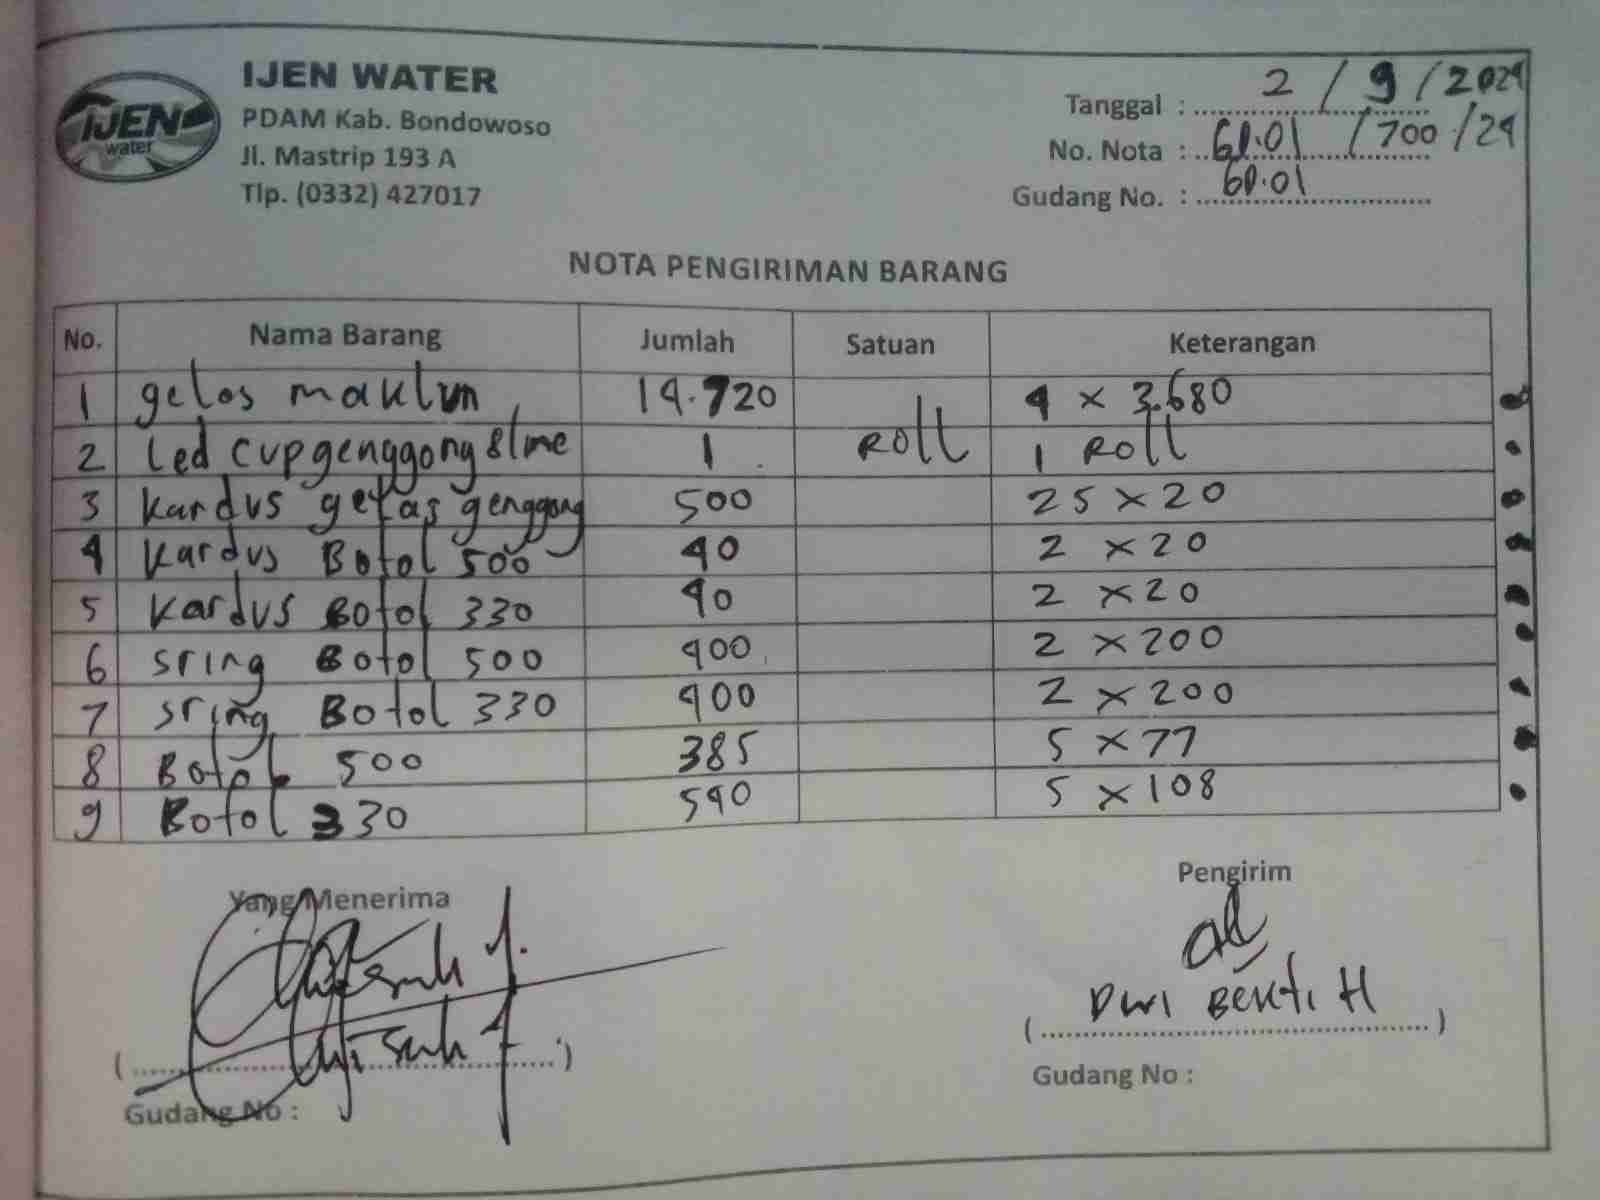 IJEN WATER
PDAM Kab. Bondowoso
Jl. Mastrip 193 A
Tlp. (0332) 427017
IJEN
water
Tanggal : 2 / 9 / 2024
No. Nota : 60.01 / 700 / 24
Gudang No. : 60.01
NOTA PENGIRIMAN BARANG
No. Nama Barang Jumlah Satuan Keterangan
1 gelas maklun 14.720 4 x 3.680
2 Led cup genggong 8 line 1 Roll 1 Roll
3 Kardus gelas genggong 500 25 x 20
4 Kardus Botol 500 40 2 x 20
5 Kardus Botol 330 40 2 x 20
6 sring Botol 500 400 2 x 200
7 sring Botol 330 400 2 x 200
8 Botol 500 385 5 x 77
9 Botol 330 540 5 x 108
Yang Menerima
Gudang No :
Pengirim
( Dwi Bekti H )
Gudang No :